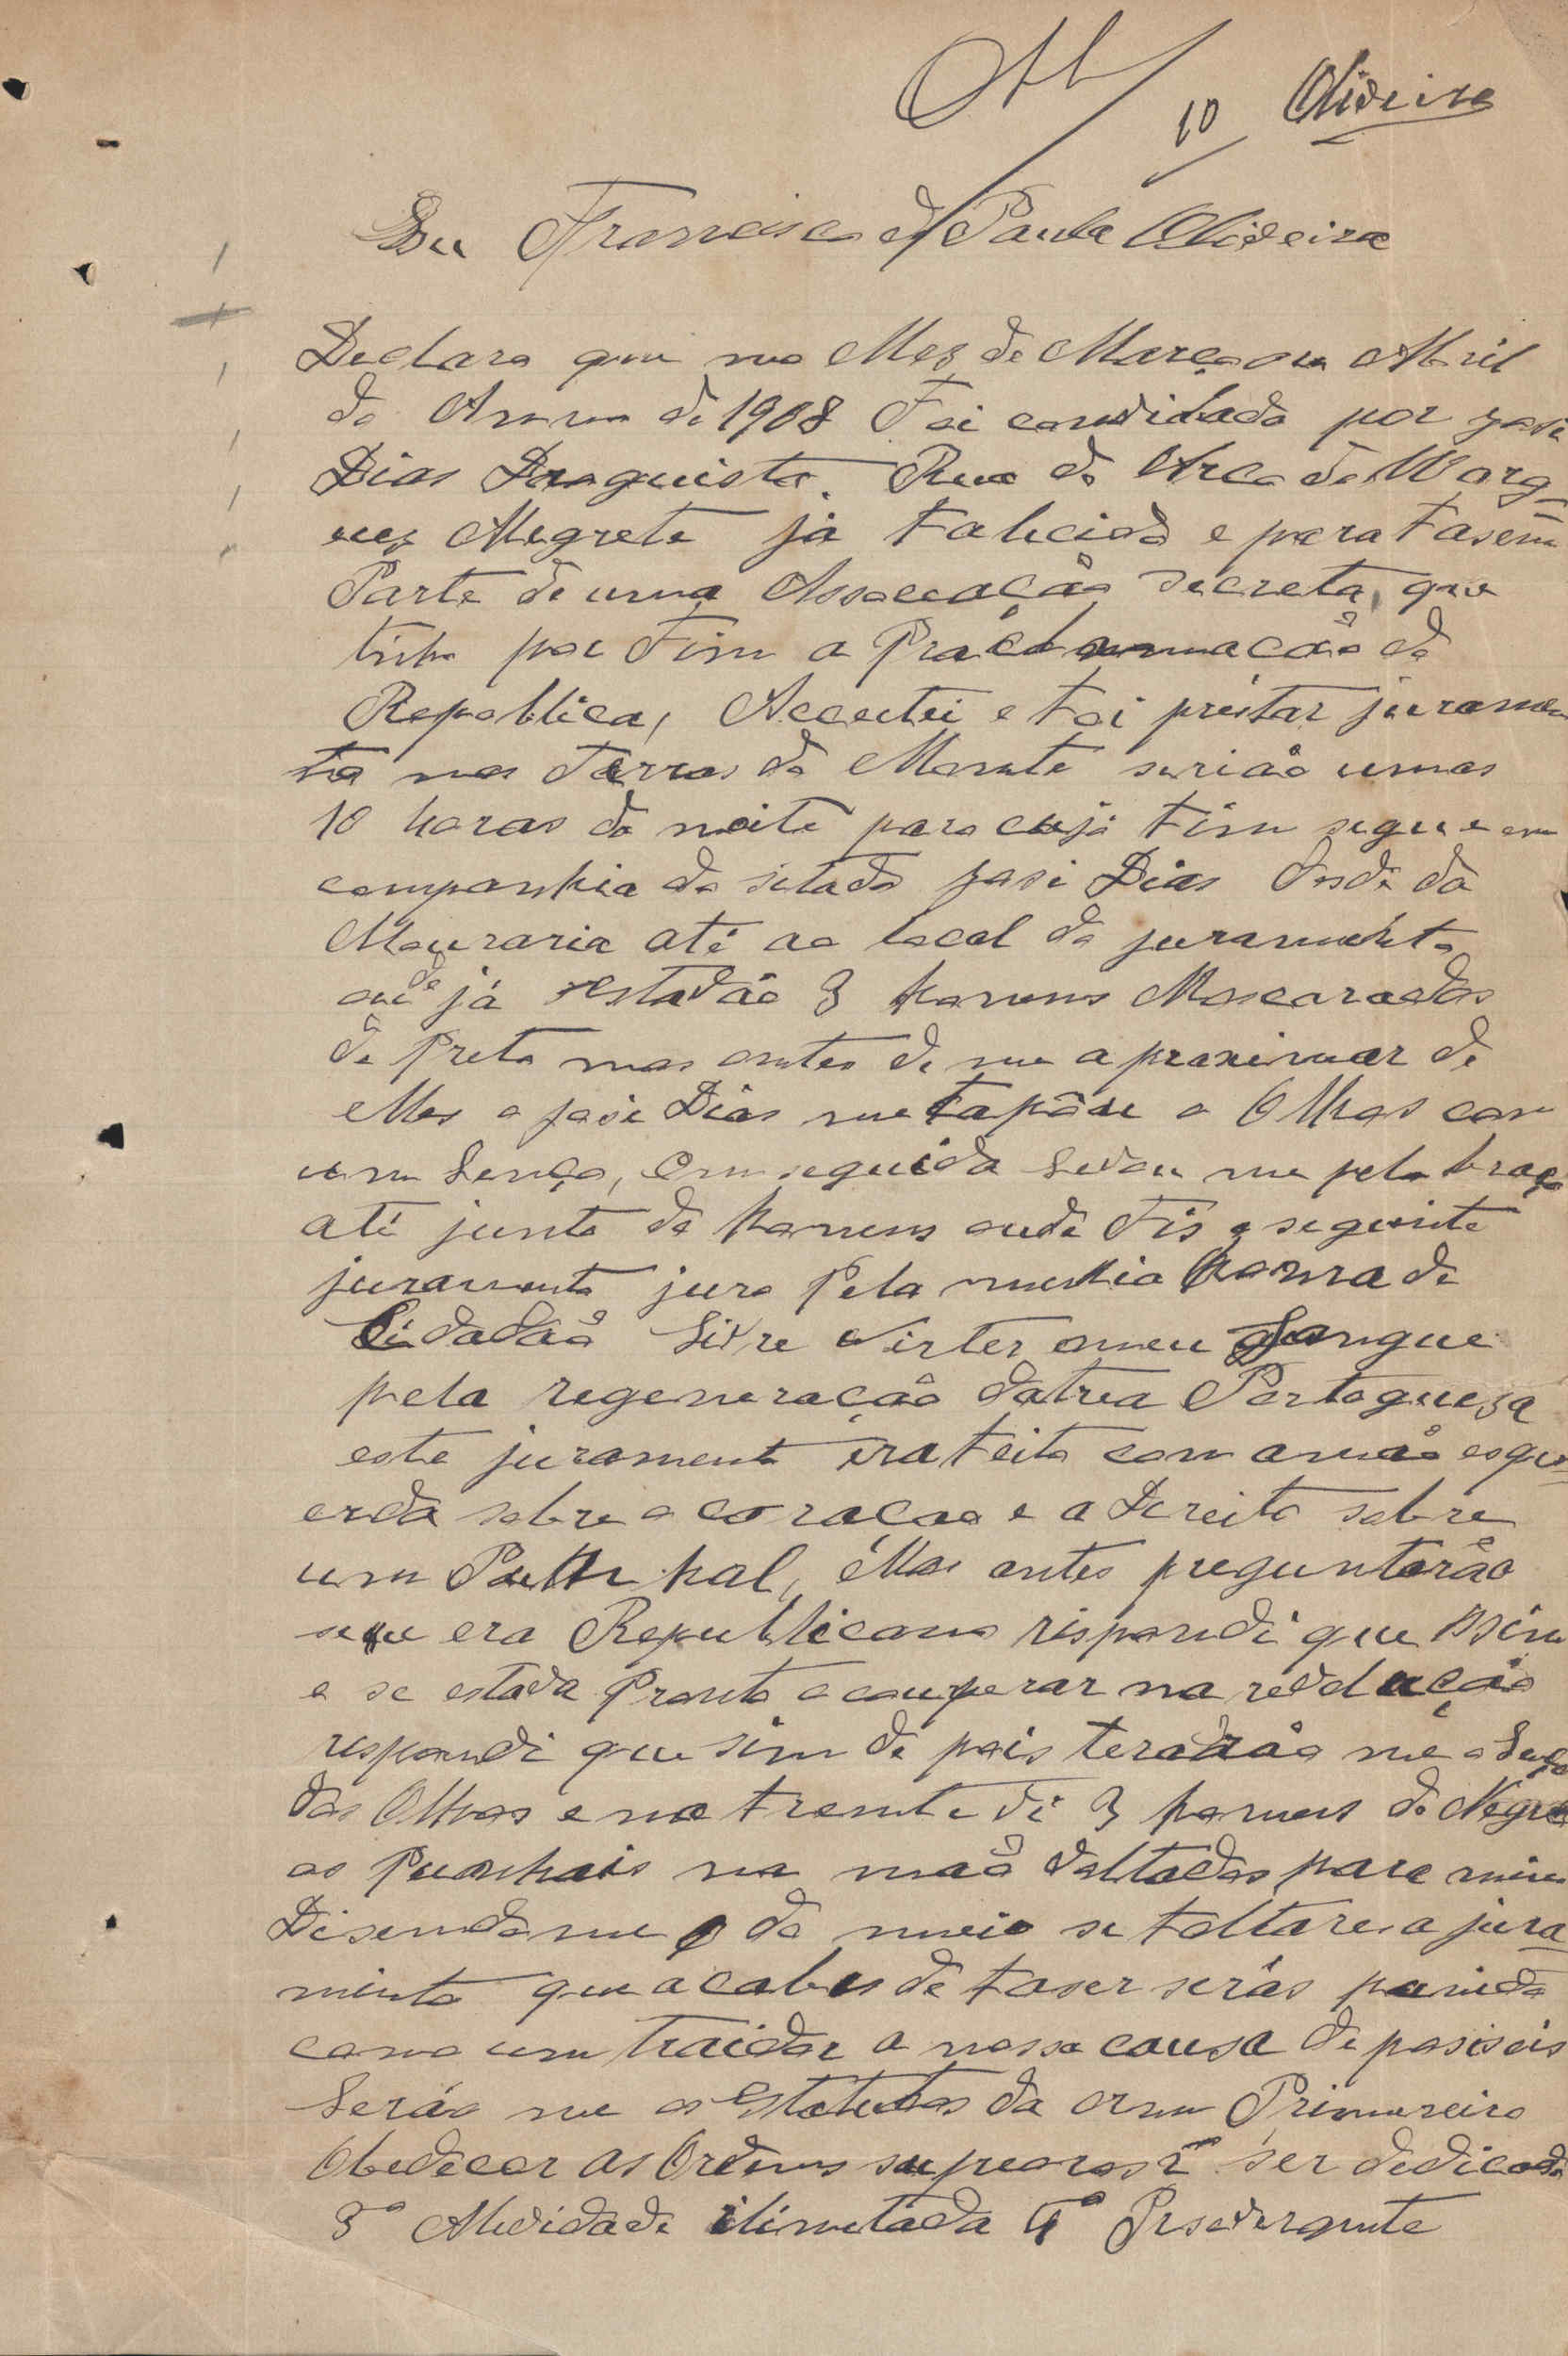 10 Oliveira
Eu Francisco de Paula Oliveira
Declaro que no Mez de Março ou Abril
do Anno de 1908 Foi convidado por José
Dias Droguista. Rua do Arco do Marq-
uez Alegrete já falecido e para fasem
Parte de uma Assoceação secreta, que
tinha por Fim a Proclammação da
Republica, Acceitei e foi prestar juramen
to nas Terras do Monte serião umas
10 horas da noite para cujo fim segue em
companhia do sitado José Dias desde da
Mouraria até ao local do juramento
onde já estavão 3 homens Mascarados
de Preto mas antes de me aproximar de
elles o José Dias me tapou o Olhos com
um Lenço, em seguida Levou me pelo braço
até junto do homens onde Fis o seguinte
juramento juro Pela minhia honra de
Cidadão Livre Verter o meu Sangue
pela regeneração Patrea Portogueza
este juramento era feito com a mão esqu-
erda sobre o coração e a Dereita sobre
um Punhal, Mas antes preguntarão
se eu era Republicano rispondi que Sim
e se estava Pronto a couperar na revolução
respondi que sim de pois terarão me o Lenço
dos Olhos e na frente vi 3 homens de Negro
os Punhais na mão voltados para mim
Disendo me o do meio se faltares a jura-
mento que acabas de faser serás punido
como um traidor a nossa causa de pois eis
Lerão me os Estatutos da orm Primeireiro
Obedecer as Ordens supeoras 2º ser dedicado
3º Atividade ilimetada 4º Presaverante